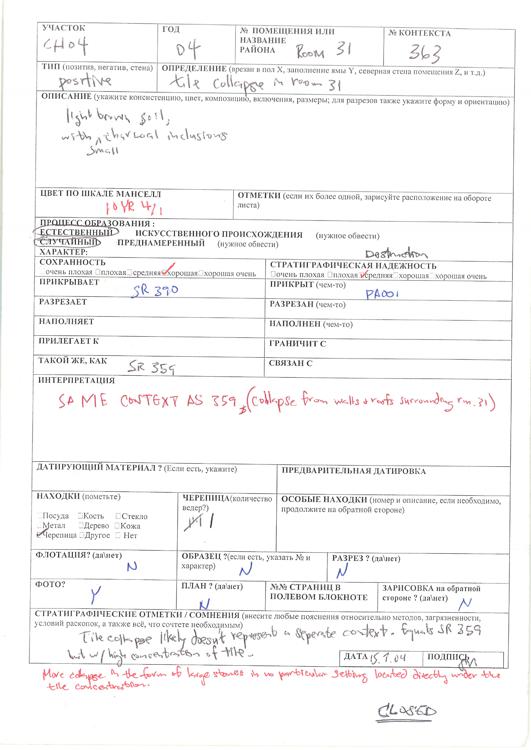 УЧАСТОК ГОД № ПОМЕЩЕНИЯ ИЛИ НАЗВАНИЕ РАЙОНА № КОНТЕКСТА
CH04 04 ROOM 31 363
ТИП (позитив, негатив, стена) ОПРЕДЕЛЕНИЕ (врезан в пол X, заполнение ямы Y, северная стена помещения Z, и т.д.)
positive tile collapse in room 31
ОПИСАНИЕ (укажите консистенцию, цвет, композицию, включения, размеры; для разрезов также укажите форму и ориентацию)
light brown soil,
with charcoal inclusions
small
ЦВЕТ ПО ШКАЛЕ МАНСЕЛЛ ОТМЕТКИ (если их более одной, зарисуйте расположение на обороте листа)
10YR 4/1
ПРОЦЕСС ОБРАЗОВАНИЯ :
ЕСТЕСТВЕННЫЙ ИСКУССТВЕННОГО ПРОИСХОЖДЕНИЯ (нужное обвести)
СЛУЧАЙНЫЙ ПРЕДНАМЕРЕННЫЙ (нужное обвести)
ХАРАКТЕР: Destruction
СОХРАННОСТЬ СТРАТИГРАФИЧЕСКАЯ НАДЕЖНОСТЬ
очень плохая плохая средняя хорошая хорошая очень очень плохая плохая средняя хорошая хорошая очень
ПРИКРЫВАЕТ SR 390 ПРИКРЫТ (чем-то) PA001
РАЗРЕЗАЕТ РАЗРЕЗАН (чем-то)
НАПОЛНЯЕТ НАПОЛНЕН (чем-то)
ПРИЛЕГАЕТ К ГРАНИЧИТ С
ТАКОЙ ЖЕ, КАК SR 359 СВЯЗАН С
ИНТЕРПРЕТАЦИЯ
SAME CONTEXT AS 359, (collapse from walls & roofs surrounding rm. 31)
ДАТИРУЮЩИЙ МАТЕРИАЛ ? (Если есть, укажите) ПРЕДВАРИТЕЛЬНАЯ ДАТИРОВКА
НАХОДКИ (пометьте) ЧЕРЕПИЦА(количество ведер?) ОСОБЫЕ НАХОДКИ (номер и описание, если необходимо, продолжите на обратной стороне)
Посуда Кость Стекло
Метал Дерево Кожа
Черепица Другое Нет
ФЛОТАЦИЯ? (да\нет) N ОБРАЗЕЦ ?(если есть, указать № и характер) N РАЗРЕЗ ? (да\нет) N
ФОТО? Y ПЛАН ? (да\нет) N №№ СТРАНИЦ В ПОЛЕВОМ БЛОКНОТЕ ЗАРИСОВКА на обратной стороне ? (да\нет) N
СТРАТИГРАФИЧЕСКИЕ ОТМЕТКИ / СОМНЕНИЯ (внесите любые пояснения относительно методов, загрязненности, условий раскопок, а также всё, что сочтете необходимым)
Tile collapse likely doesn't represent a seperate context. Equals SR 359
but w/ high concentration of tile.
ДАТА 15.7.04 ПОДПИСЬ
More collapse in the form of large stones in no particular setting located directly under the
tile concentration.
CLOSED